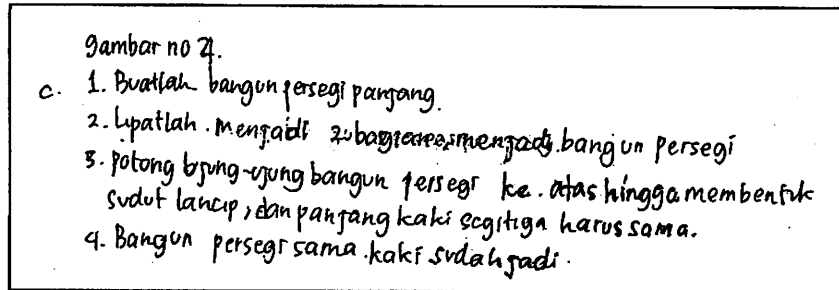 gambar no 4.
c. 1. Buatlah bangun persegi panjang.
2. Lipatlah. menjadi menjadi. bangun persegi
3. potong ujung-ujung bangun persegi ke. atas hingga membentuk
sudut lancip, dan panjang kaki segitiga harus sama.
4. Bangun persegi sama. kaki sudah jadi.